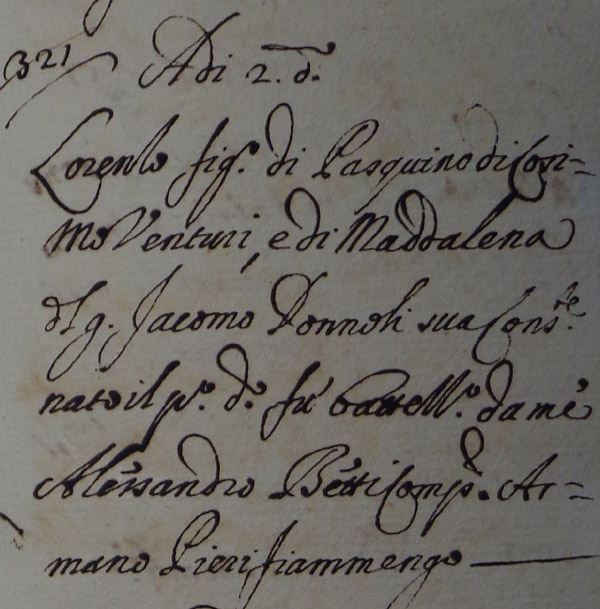 321 Adi 2. d.º
Lorenzo fig.º di Pasquino di Cosi=
mo Venturi, e di Maddalena
d'Ig. Jacomo Donnoli sua Cons.te
nato il p.º d.º fu battezz.º da me
Alessandro Betti Comp.e Ar=
mano Pieri fiammengo